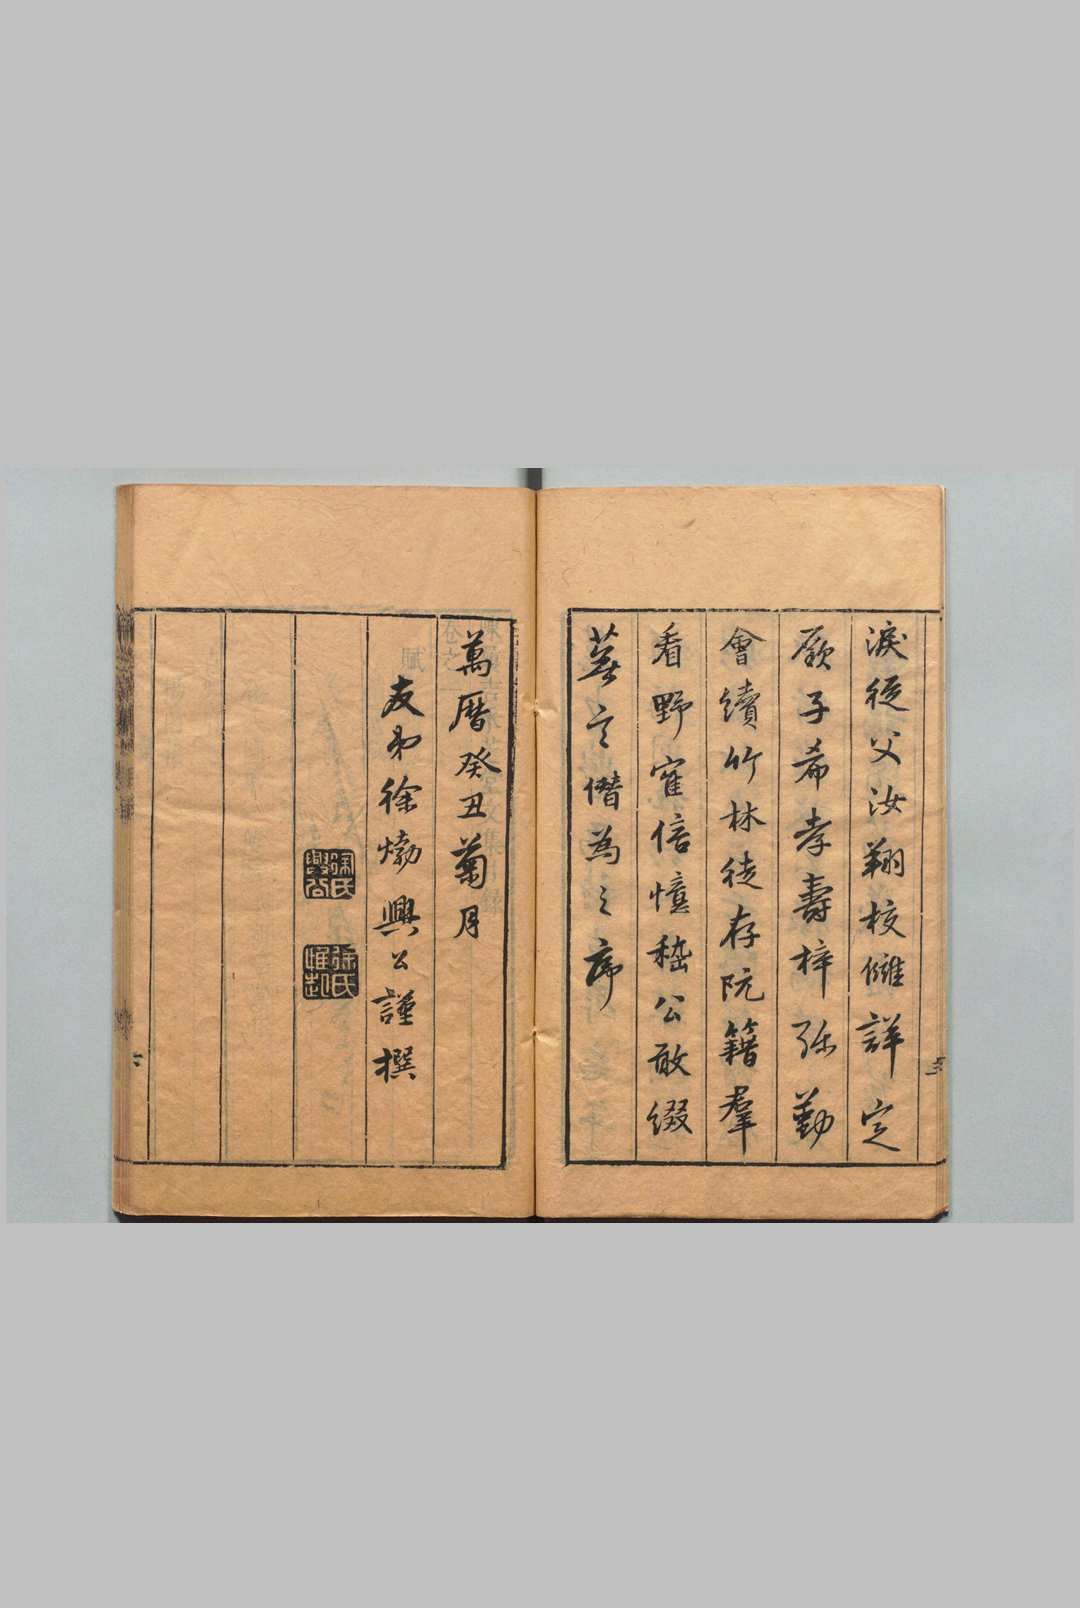 淚從父汝翔校讎詳定
厥子希孝壽梓弥勤
會續竹林徒存阮籍羣
看野寉倍憶嵇公敢綴
蕪言僭為之序
萬曆癸丑菊月
友弟徐𤊹興公謹撰
徐氏興公
徐氏惟起